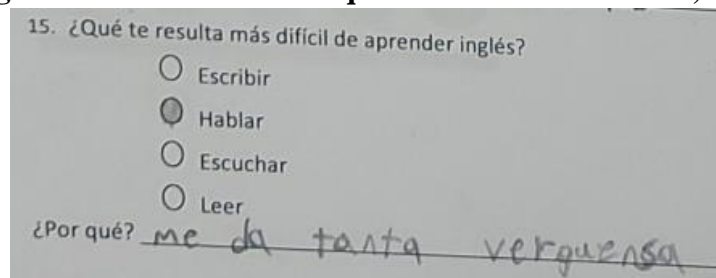 15. ¿Qué te resulta más difícil de aprender inglés?
Escribir
Hablar
Escuchar
Leer
¿Por qué? me da tanta verguensa